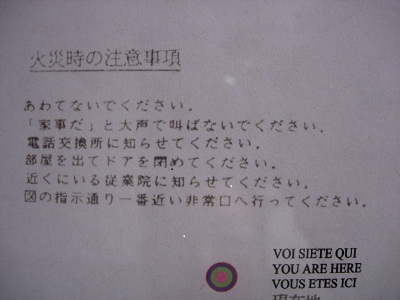 火災時の注意事項
あわてないでください．
「家事だ」と大声で叫ばないでください．
電話交換所に知らせてください．
部屋を出てドアを閉めてください．
近くにいる従業院に知らせてください．
図の指示通り一番近い非常口へ行ってください．
VOI SIETE QUI
YOU ARE HERE
VOUS ETES ICI
現在地